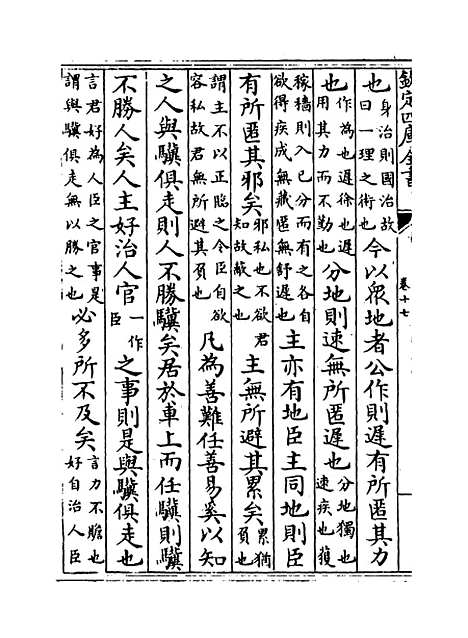 欽定四庫全書
卷十七
也身治則國治故曰一理之術也今以衆地者公作則遲有所匿其力
也作為也遲徐也遲用其力而不勤也分地則速無所匿遲也分地獨也速疾也獲
稼穡則入已分而有之各自欲得疾成無藏匿無舒遲也主亦有地臣主同地則臣
有所匿其邪矣邪私也不欲君知故蔽之也主無所避其累矣累猶負也
謂主不以正臨之令臣自欲容私故君無所避其負也凡為善難任善易奚以知
之人與驥俱走則人不勝驥矣居於車上而任驥則驥
不勝人矣人主好治人官一作臣之事則是與驥俱走也
言君好為人臣之官事是謂與驥俱走無以勝之也必多所不及矣言力不贍也好自治人臣